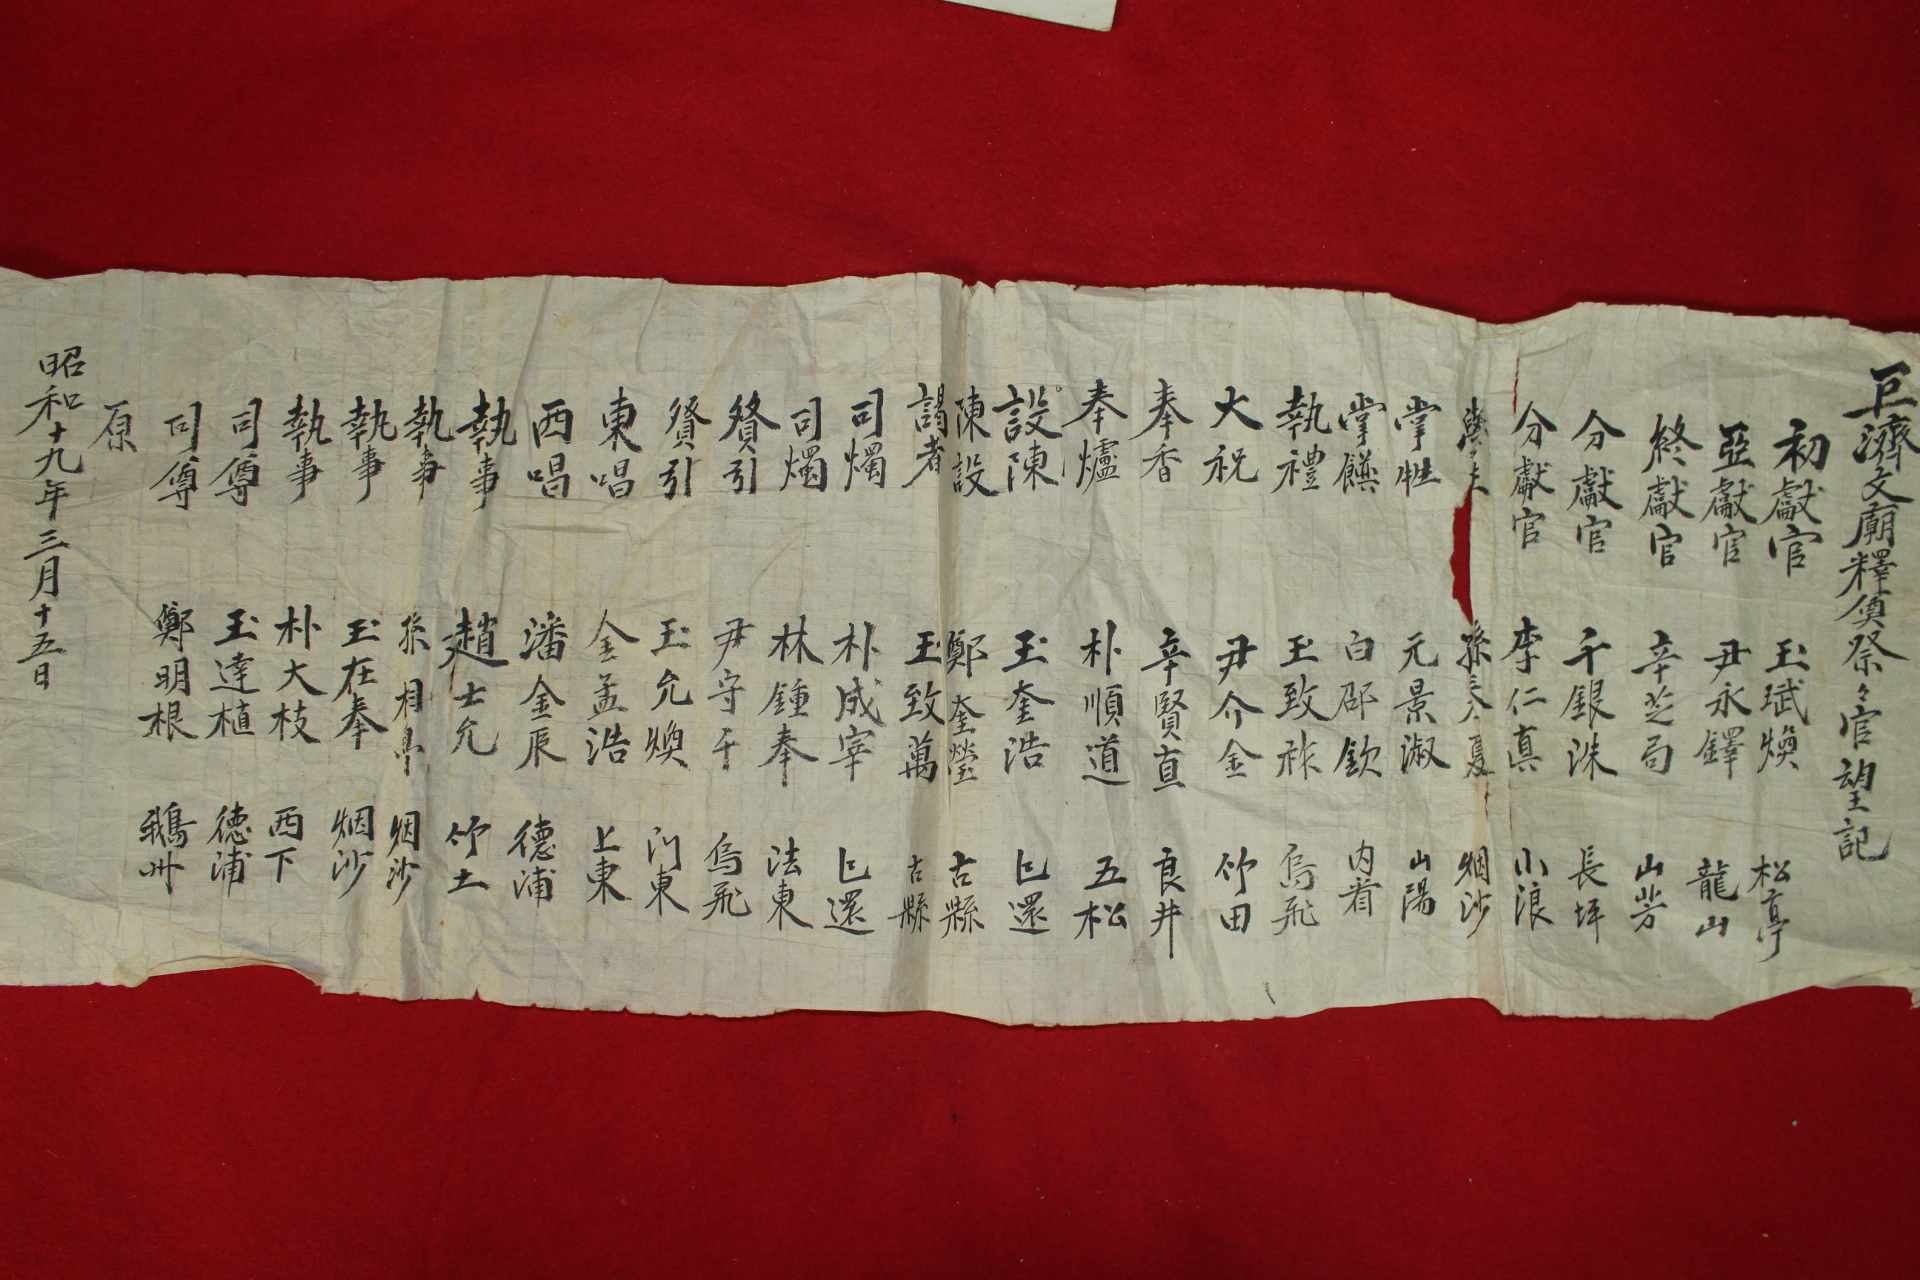 巨濟文廟釋奠祭官望記
初獻官 玉珷煥 松亭
亞獻官 尹永鐸 龍山
終獻官 辛芝局 山芳
分獻官 千銀洙 長坪
分獻官 李仁眞 小浪
孫 夏 烟沙
掌牲 元景淑 山陽
掌饌 白 欽 內看
執禮 玉致祚 烏飛
大祝 尹介金 竹田
奉香 辛賢直 良井
奉爐 朴順道 五松
設陳 玉奎浩 巳還
陳設 鄭奎瑩 古縣
謁者 玉致萬 古縣
司燭 朴成宰 巳還
司燭 林鍾奉 法東
贊引 尹守千 烏飛
贊引 玉允煥 门東
東唱 金孟浩 上東
西唱 潘金辰 德浦
執事 趙士允 竹土
執事 孫相 烟沙
執事 玉在奉 烟沙
執事 朴大枝 西下
司尊 玉達植 德浦
司尊 鄭明根 鵝州
原
昭和十九年三月十五日